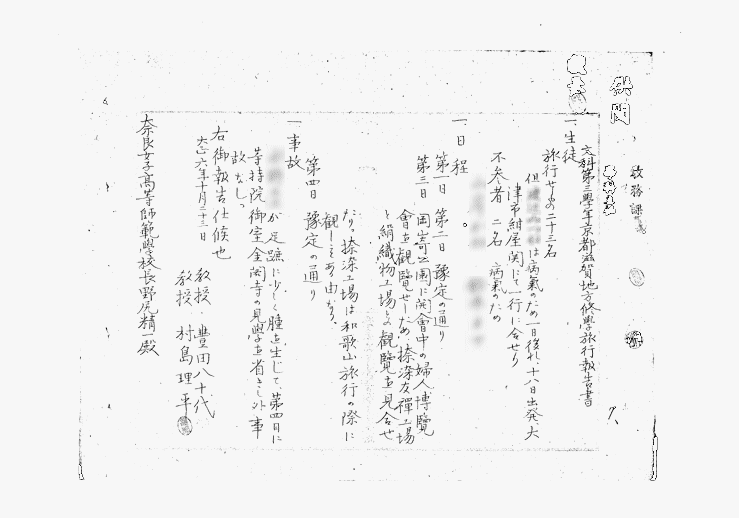 供閲
教務課
文科第三學年京都滋賀地方修學旅行報告書
一、生徒
旅行せしもの二十三名
但 は病氣のため一日後れ、十八日出発、大
津市紺屋関にて一行に合せり
不参者 二名 病氣のため
一、日程
第一日 第二日 豫定の通り
第三日 岡崎公園に開會中の婦人博覧
會を観覧せしため捺染友禪工場
と絹織物工場との観覧を見合せ
たり、捺染工場は和歌山旅行の際に
観しをある由なり、
第四日 豫定の通り
一、事故
が足蹠に少しく腫を生じて、第四日に
等持院御室金閣寺の見學を省きし外事
故なし、
右御報告仕候也
大正六年十月二十三日
教授 豊田八十代
教授 村島理平
奈良女子高等師範學校長野尻精一殿